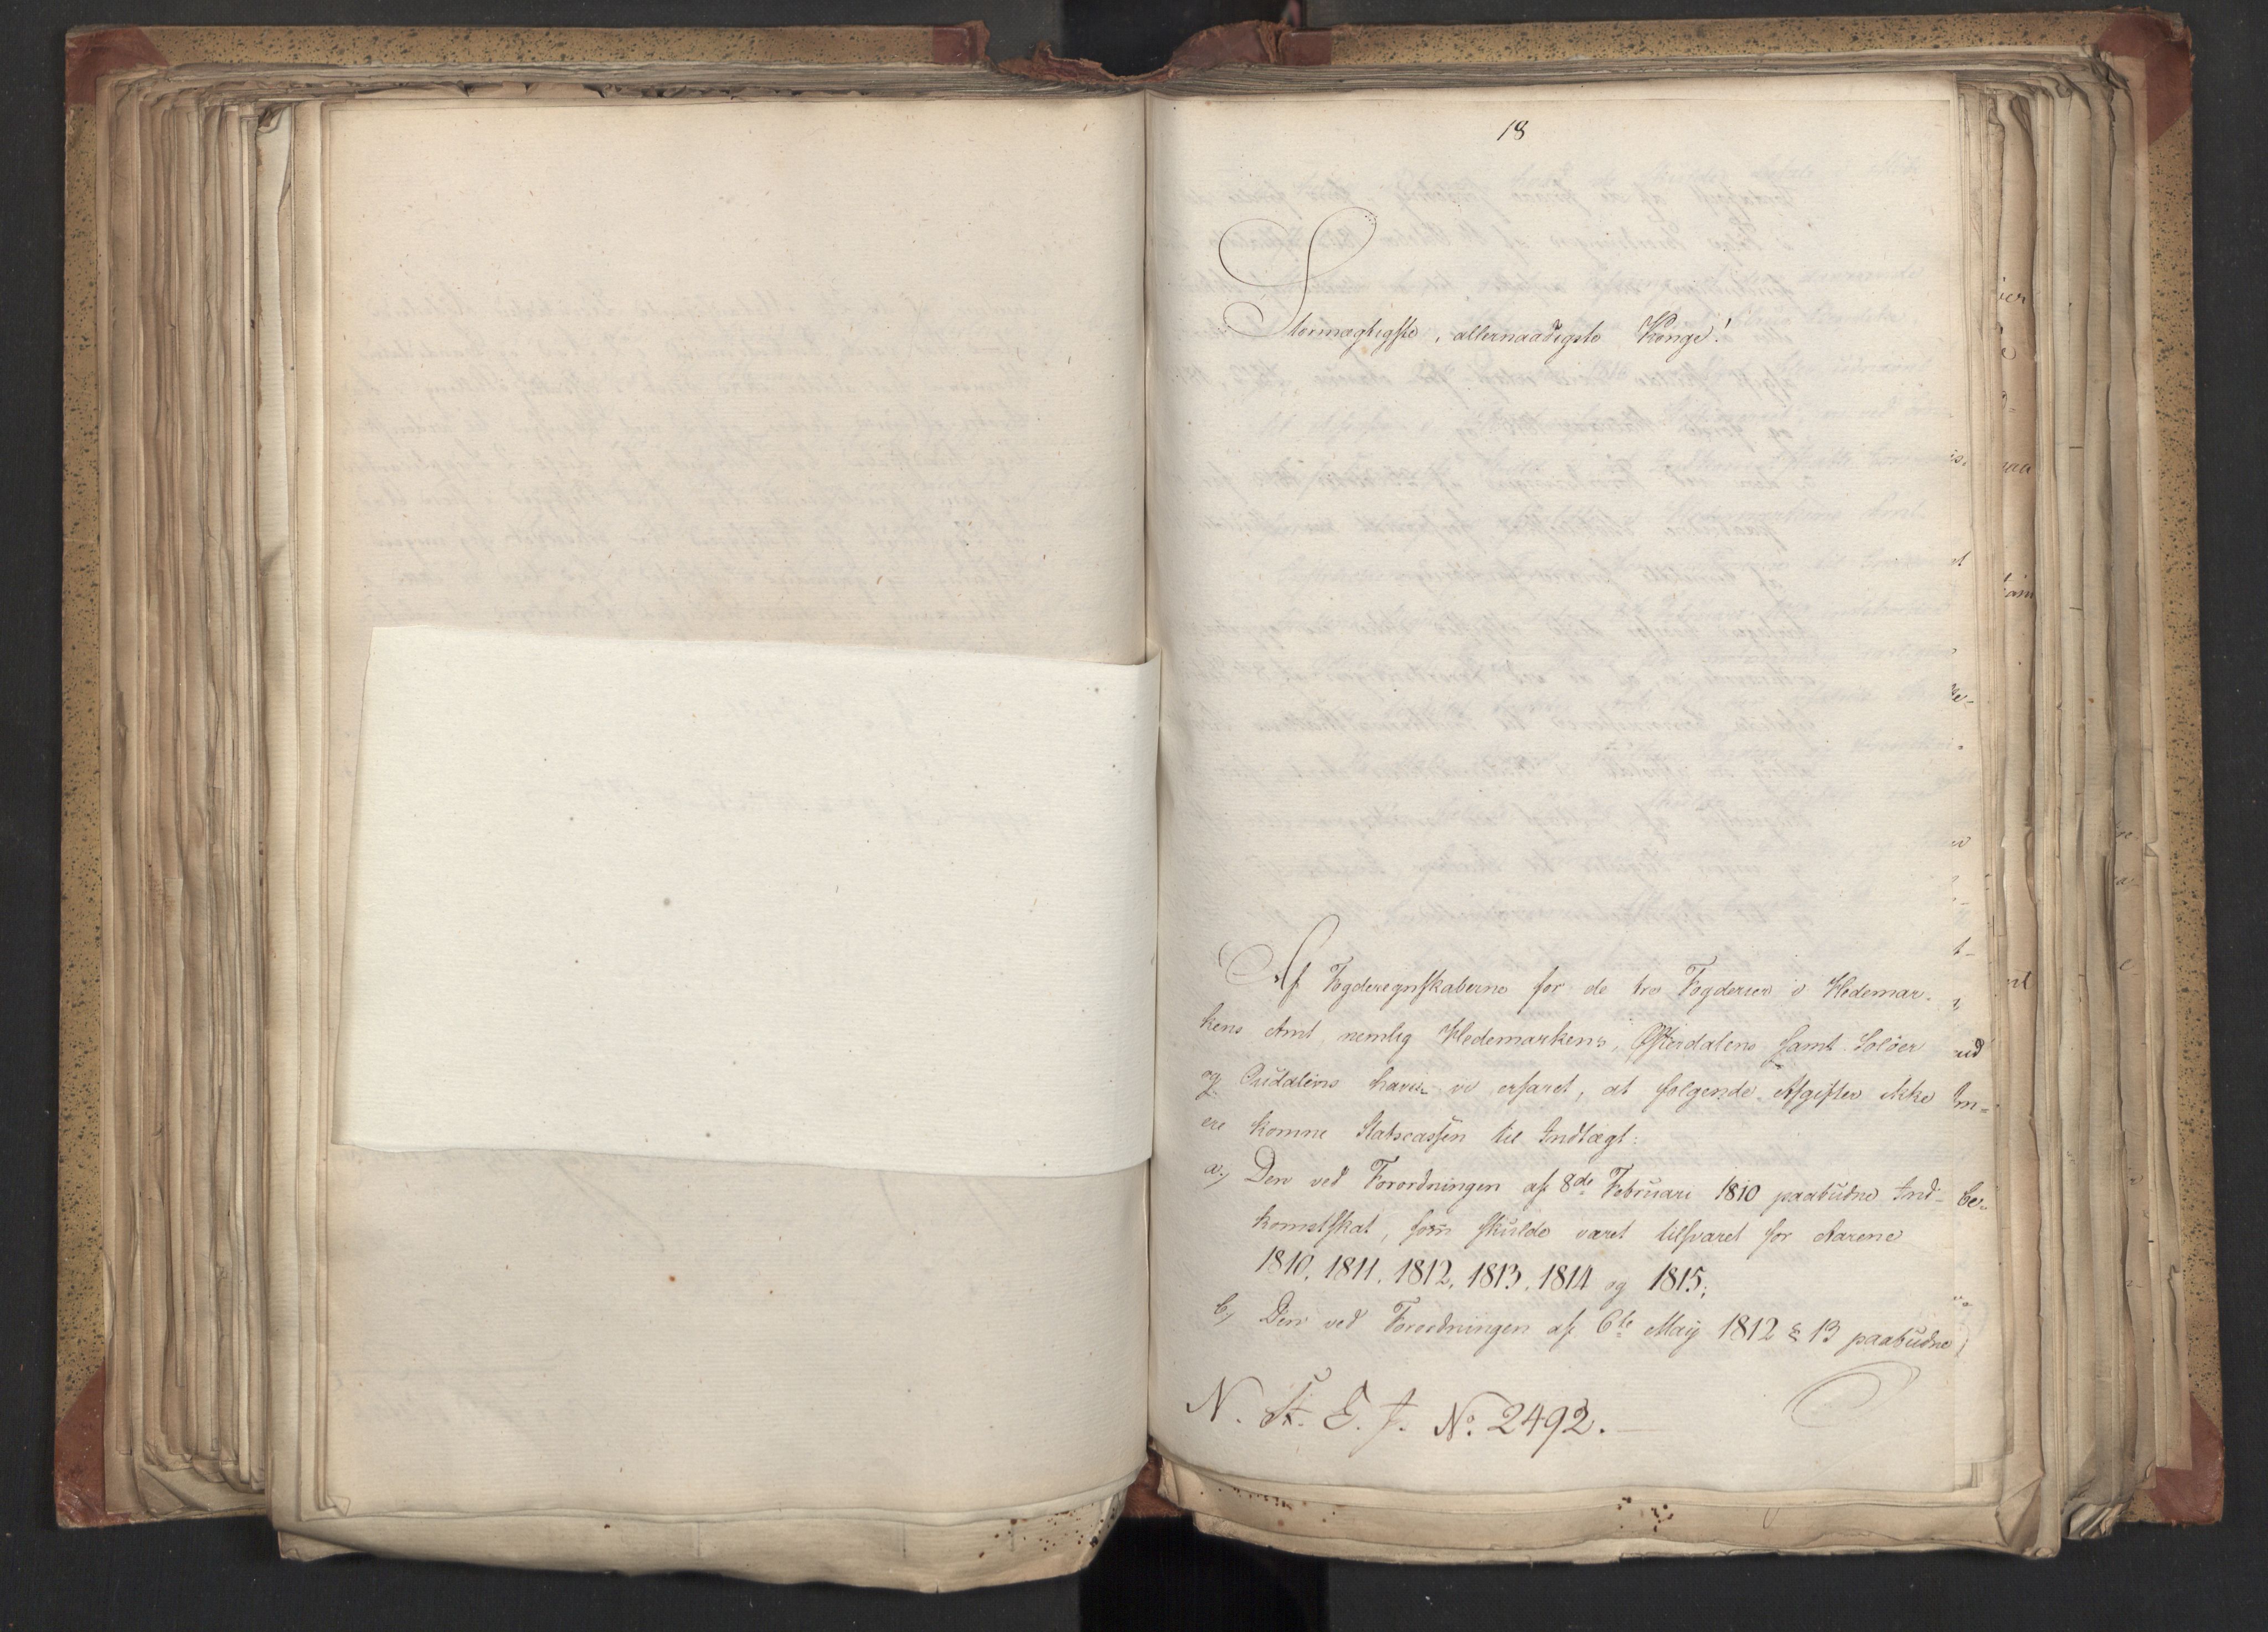 18
Stormægtigste, allernaadigste Konge!
Af Fogderegnskaberne for de tre Fogderier i Hedemar-
kens Amt, nemlig Hedemarkens, Østerdalens samt Soløer
og Oudalens have vi erfaret, at følgende Afgifter ikke
ere komne Statscassen til Indtægt:
a, Den ved Forordningen af 8de Februari 1810 paabudne Ind-
komstskat, som skulde været tilsvaret for Aarene
1810, 1811, 1812, 1813, 1814 og 1815;
b, Den ved Forordningen af 6te May 1812 § 13 paabudne
N. St. E. J. No. 2492.